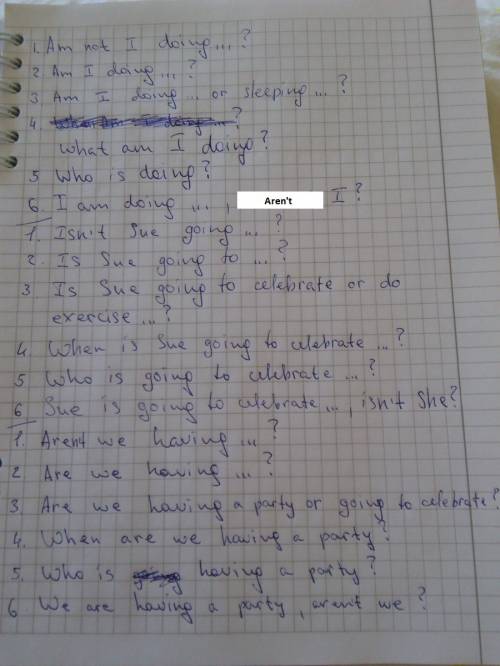 1. Am not I doing ... ?
2. Am I doing ... ?
3 Am I doing ... or sleeping ... ?
4. ?
What am I doing?
5 Who is doing?
6. I am doing ... , Aren't I ?
1. Isn't Sue going ... ?
2. Is Sue going to ... ?
3 Is Sue going to celebrate or do
exercise ... ?
4 When is Sue going to celebrate ... ?
5 Who is going to celebrate ... ?
6 Sue is going to celebrate ... , isn't She?
1. Aren't we having ... ?
2 Are we having ... ?
3 Are we having a party or going to celebrate?
4. When are we having a party?
5. Who is having a party?
6 We are having a party, aren't we ?